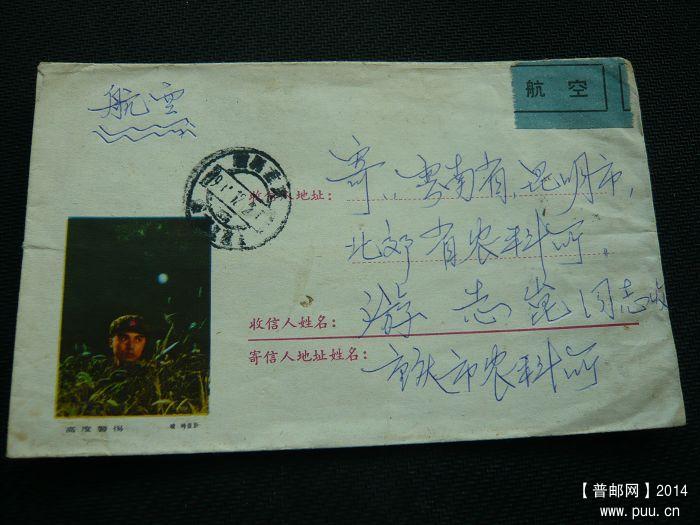 航空
航空
收信人地址：
寄：云南省，昆明市，
北郊省农科所。
收信人姓名：
游志崑同志收
寄信人地址姓名：
重庆市农科所
高度警惕
【普邮网】2014
www.puu.cn